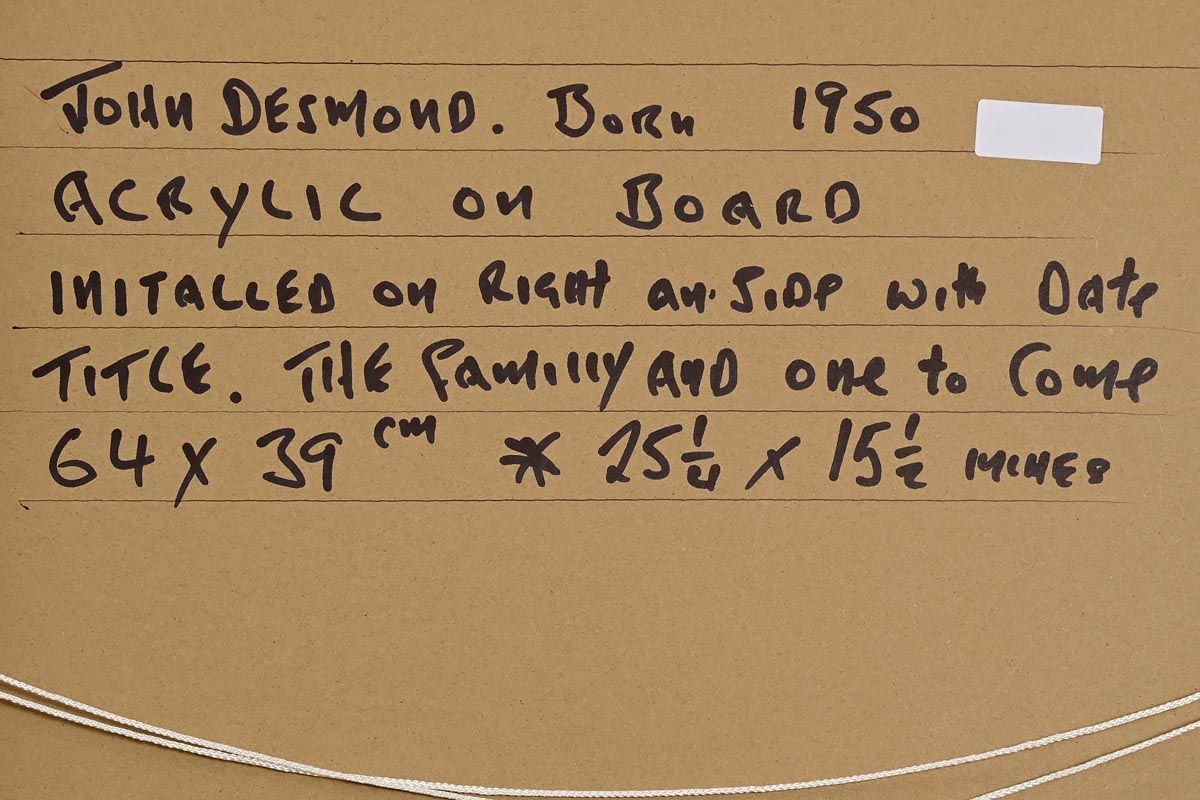 JOHN DESMOND. BORN 1950
ACRYLIC ON BOARD
INITALLED ON RIGHT an. SIDE with Date
TITLE. THE Familly AND one to Come
64 x 39 cm * 25 1/4 x 15 1/2 INCHES